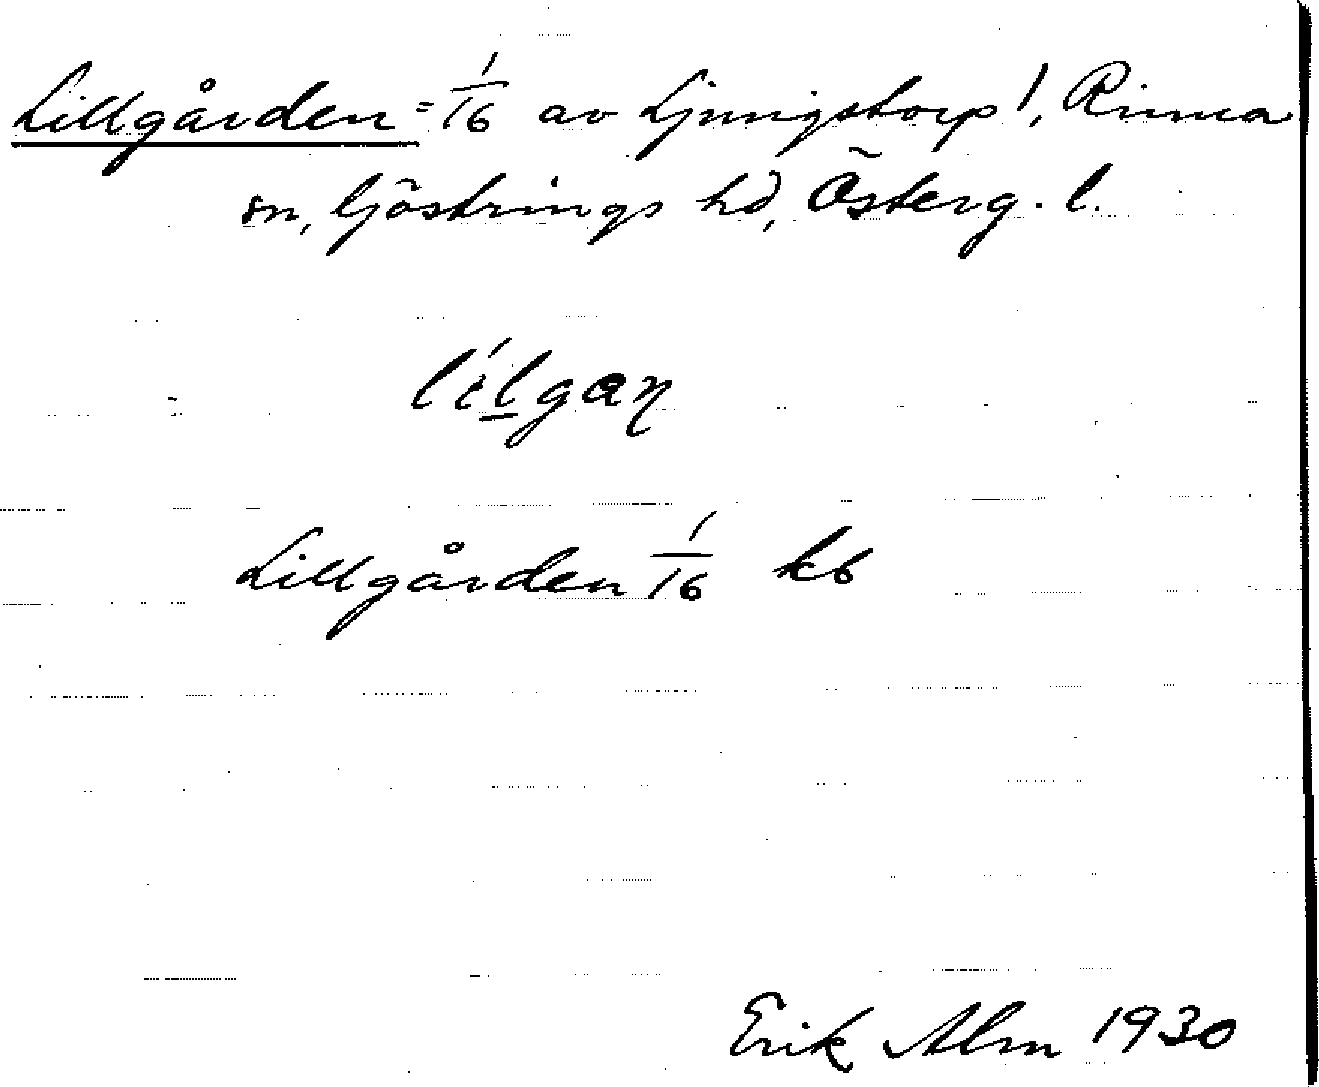 Lillgården = 1/16 av Ljungstorp!, Rinna
sn, Göstrings hd, Österg. l.
lílgaɳ
Lillgården 1/16 kb
Erik Alm 1930